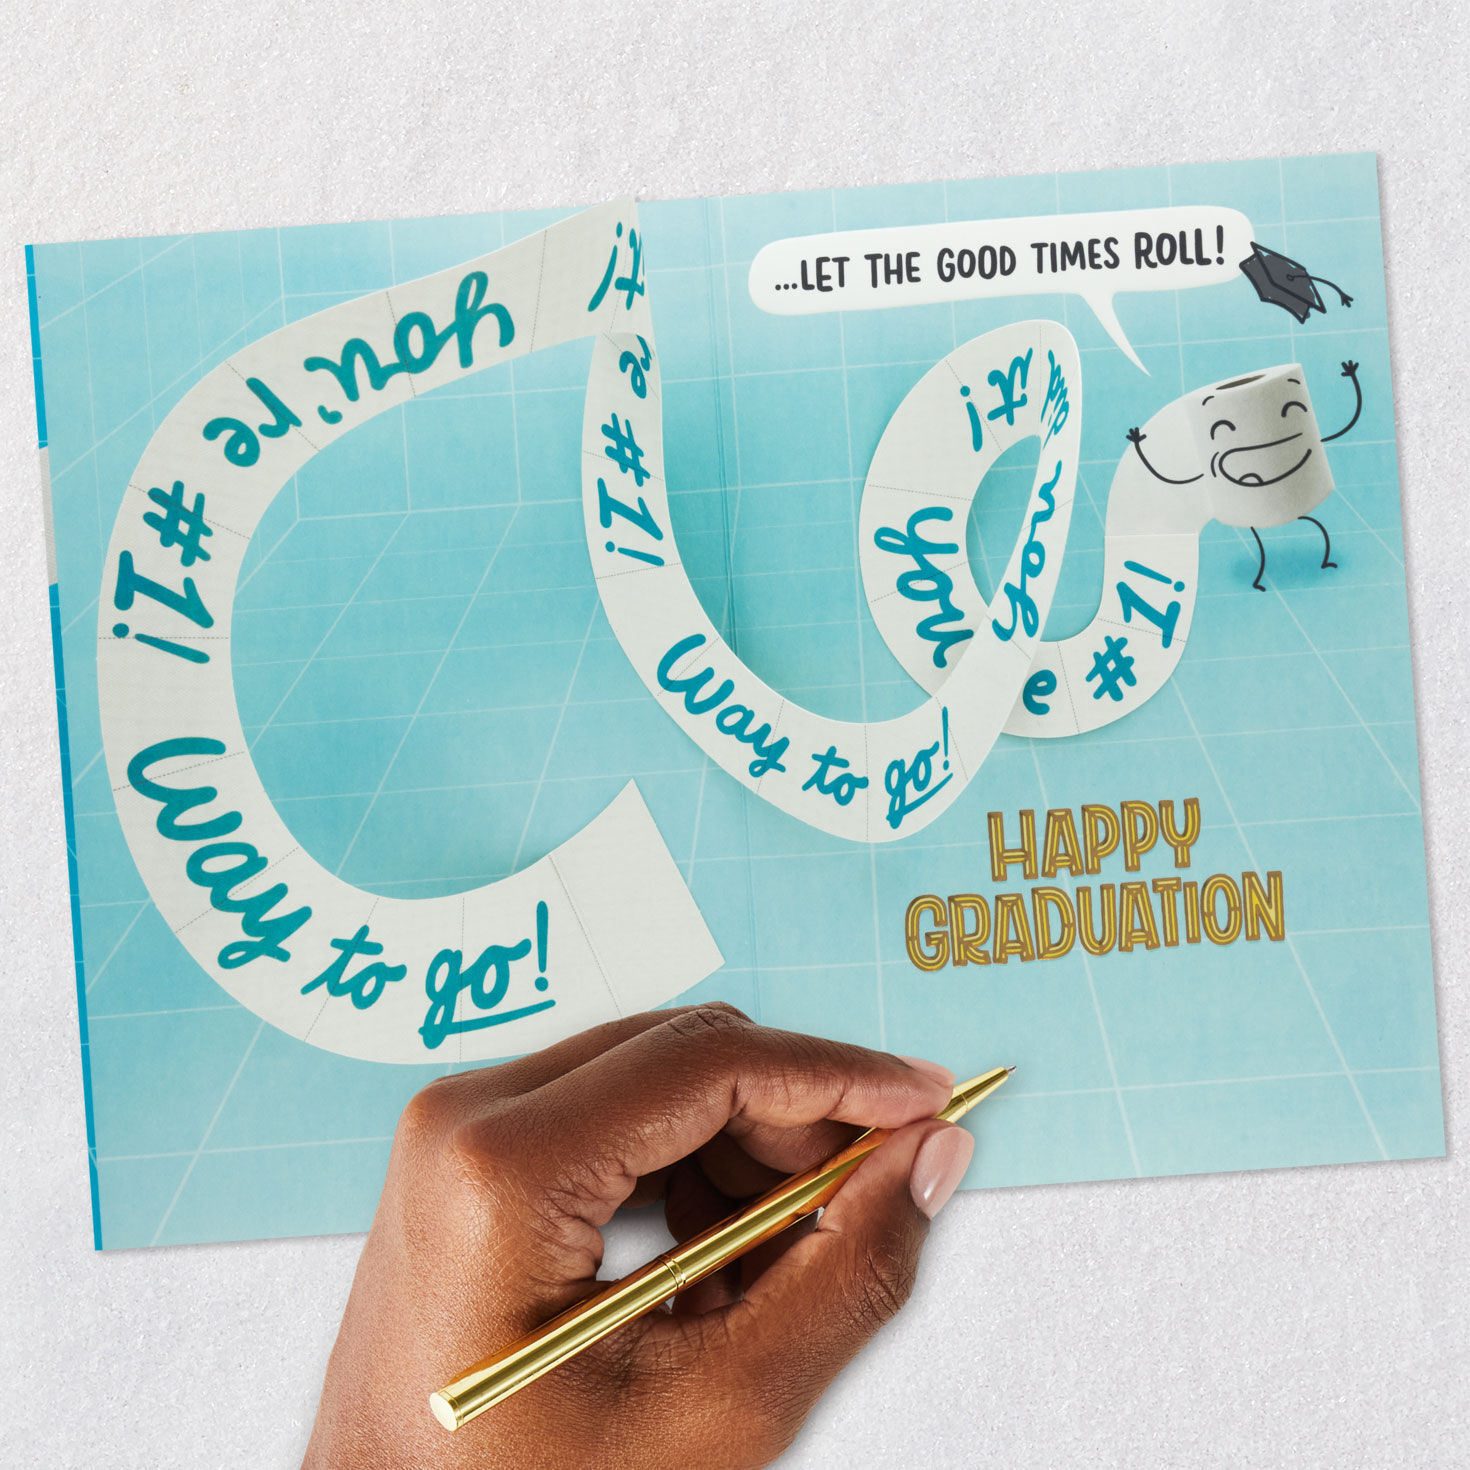 ...LET THE GOOD TIMES ROLL!
it!
you're
#1!
Way to go!
it!
re
#1!
Way to go!
you
did
it!
you
e
#1!
HAPPY
GRADUATION